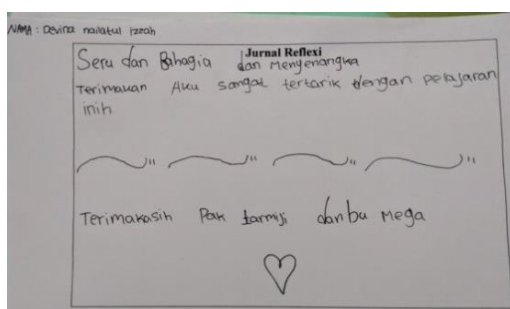 NAMA : Devina nailatul Izzah
Jurnal Reflexi
Seru dan Bahagia dan Menyenangka
Terimauan Aku sangat tertarik dengan pelajaran
inih
Terimakasih Pak tarmisi dan bu Mega